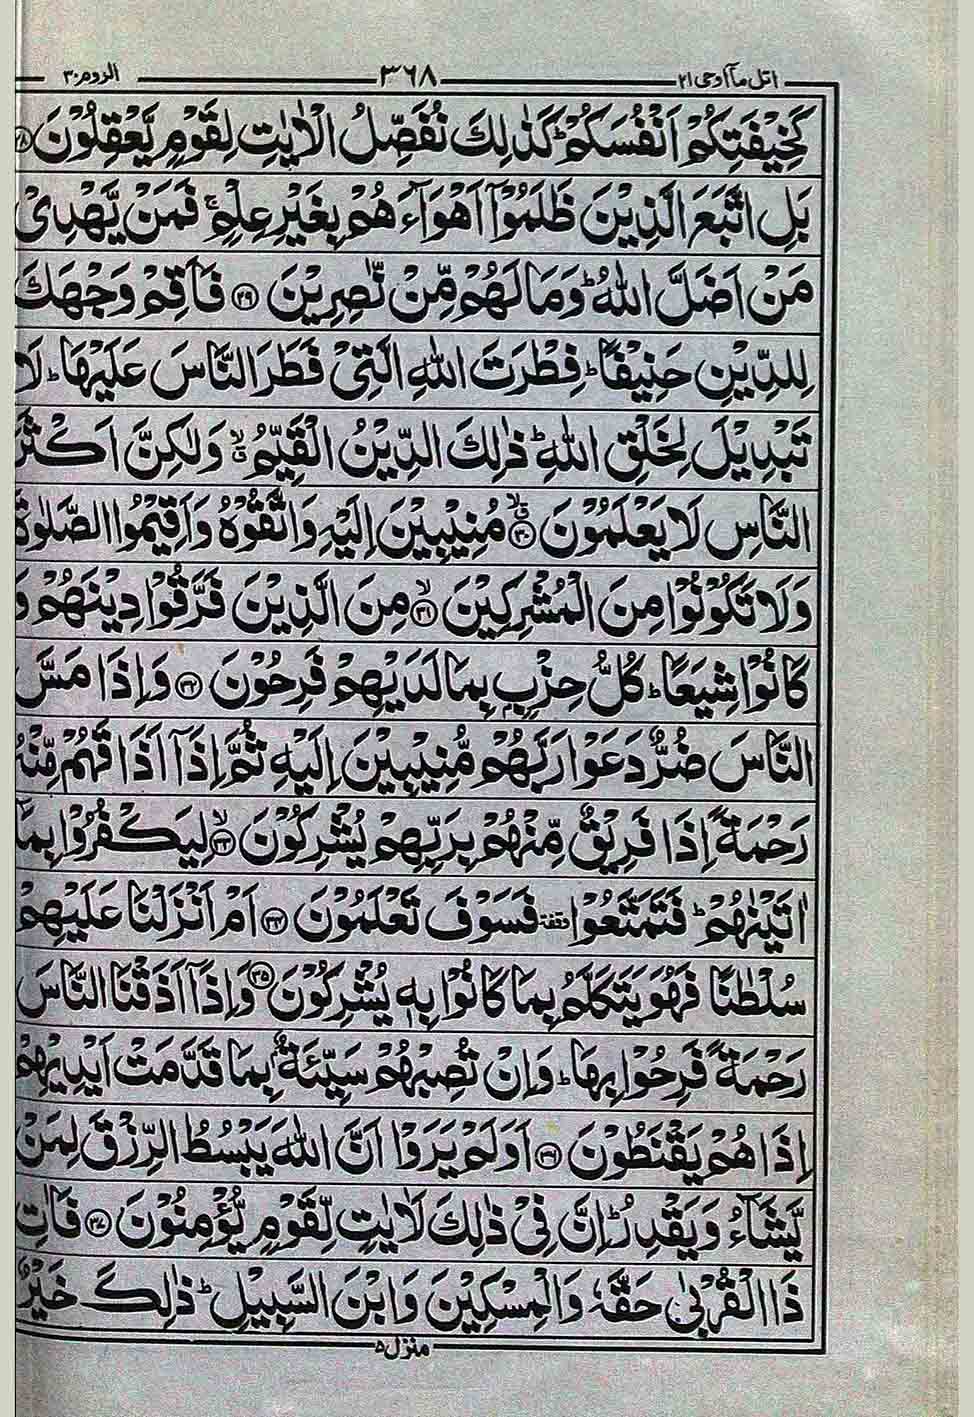 اتل مآ اوحی ۲۱ ۳۶۸ الروم ۳۰
كَخِيْفَتِكُمْ اَنْفُسَكُمْ ؕ كَذٰلِكَ نُفَصِّلُ الْاٰيٰتِ لِقَوْمٍ يَّعْقِلُوْنَ ۲۸
بَلِ اتَّبَعَ الَّذِيْنَ ظَلَمُوْۤا اَهْوَآءَ هُمْ بِغَيْرِ عِلْمٍ ۚ فَمَنْ يَّهْدِیْ
مَنْ اَضَلَّ اللّٰهُ ؕ وَمَا لَهُمْ مِّنْ نّٰصِرِيْنَ ۲۹ فَاَقِمْ وَجْهَكَ
لِلدِّيْنِ حَنِيْفًا ؕ فِطْرَتَ اللّٰهِ الَّتِیْ فَطَرَ النَّاسَ عَلَيْهَا ؕ لَا
تَبْدِيْلَ لِخَلْقِ اللّٰهِ ؕ ذٰلِكَ الدِّيْنُ الْقَيِّمُ ۙ وَلٰكِنَّ اَكْثَرَ
النَّاسِ لَا يَعْلَمُوْنَ ۳۰ مُنِيْبِيْنَ اِلَيْهِ وَاتَّقُوْهُ وَاَقِيْمُوا الصَّلٰوةَ
وَلَا تَكُوْنُوْا مِنَ الْمُشْرِكِيْنَ ۳۱ مِنَ الَّذِيْنَ فَرَّقُوْا دِيْنَهُمْ وَ
كَانُوْا شِيَعًا ؕ كُلُّ حِزْبٍۭ بِمَا لَدَيْهِمْ فَرِحُوْنَ ۳۲ وَاِذَا مَسَّ
النَّاسَ ضُرٌّ دَعَوْا رَبَّهُمْ مُّنِيْبِيْنَ اِلَيْهِ ثُمَّ اِذَاۤ اَذَاقَهُمْ مِّنْهُ
رَحْمَةً اِذَا فَرِيْقٌ مِّنْهُمْ بِرَبِّهِمْ يُشْرِكُوْنَ ۳۳ لِيَكْفُرُوْا بِمَاۤ
اٰتَيْنٰهُمْ ؕ فَتَمَتَّعُوْا وقفة فَسَوْفَ تَعْلَمُوْنَ ۳۴ اَمْ اَنْزَلْنَا عَلَيْهِمْ
سُلْطٰنًا فَهُوَ يَتَكَلَّمُ بِمَا كَانُوْا بِهٖ يُشْرِكُوْنَ ۳۵ وَاِذَاۤ اَذَقْنَا النَّاسَ
رَحْمَةً فَرِحُوْا بِهَا ؕ وَاِنْ تُصِبْهُمْ سَيِّئَةٌۢ بِمَا قَدَّمَتْ اَيْدِيْهِمْ
اِذَا هُمْ يَقْنَطُوْنَ ۳۶ اَوَلَمْ يَرَوْا اَنَّ اللّٰهَ يَبْسُطُ الرِّزْقَ لِمَنْ
يَّشَآءُ وَيَقْدِرُ ؕ اِنَّ فِیْ ذٰلِكَ لَاٰيٰتٍ لِّقَوْمٍ يُّؤْمِنُوْنَ ۳۷ فَاٰتِ
ذَا الْقُرْبٰى حَقَّهٗ وَالْمِسْكِيْنَ وَابْنَ السَّبِيْلِ ؕ ذٰلِكَ خَيْرٌ
منزل ۵